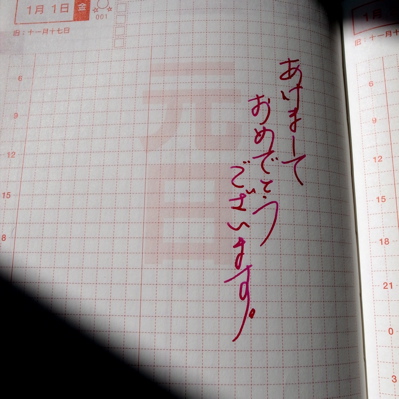 1月 1日 金
001
旧:十一月十七日
元日
あけまして
おめでとう
ございます。
6
9
12
15
6
9
12
15
18
21
0
3